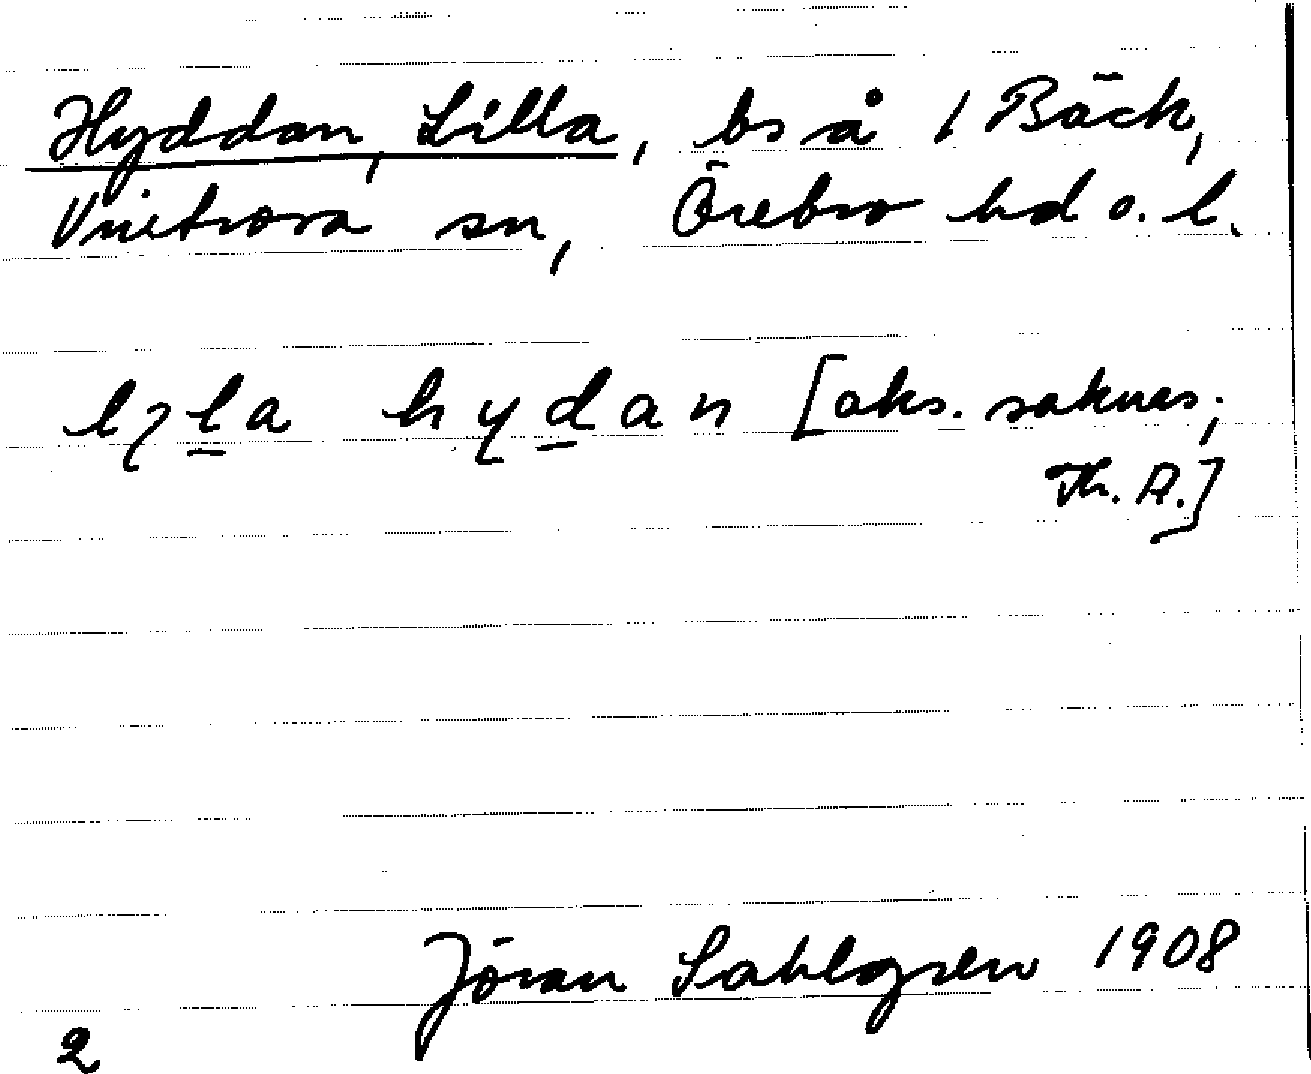 Hyddan, Lilla, bs å 1 Bäck,
Vintrosa sn, Örebro hd o. l.
hydan [aks. saknas;
Th. A.]
Jöran Sahlgren 1908
2